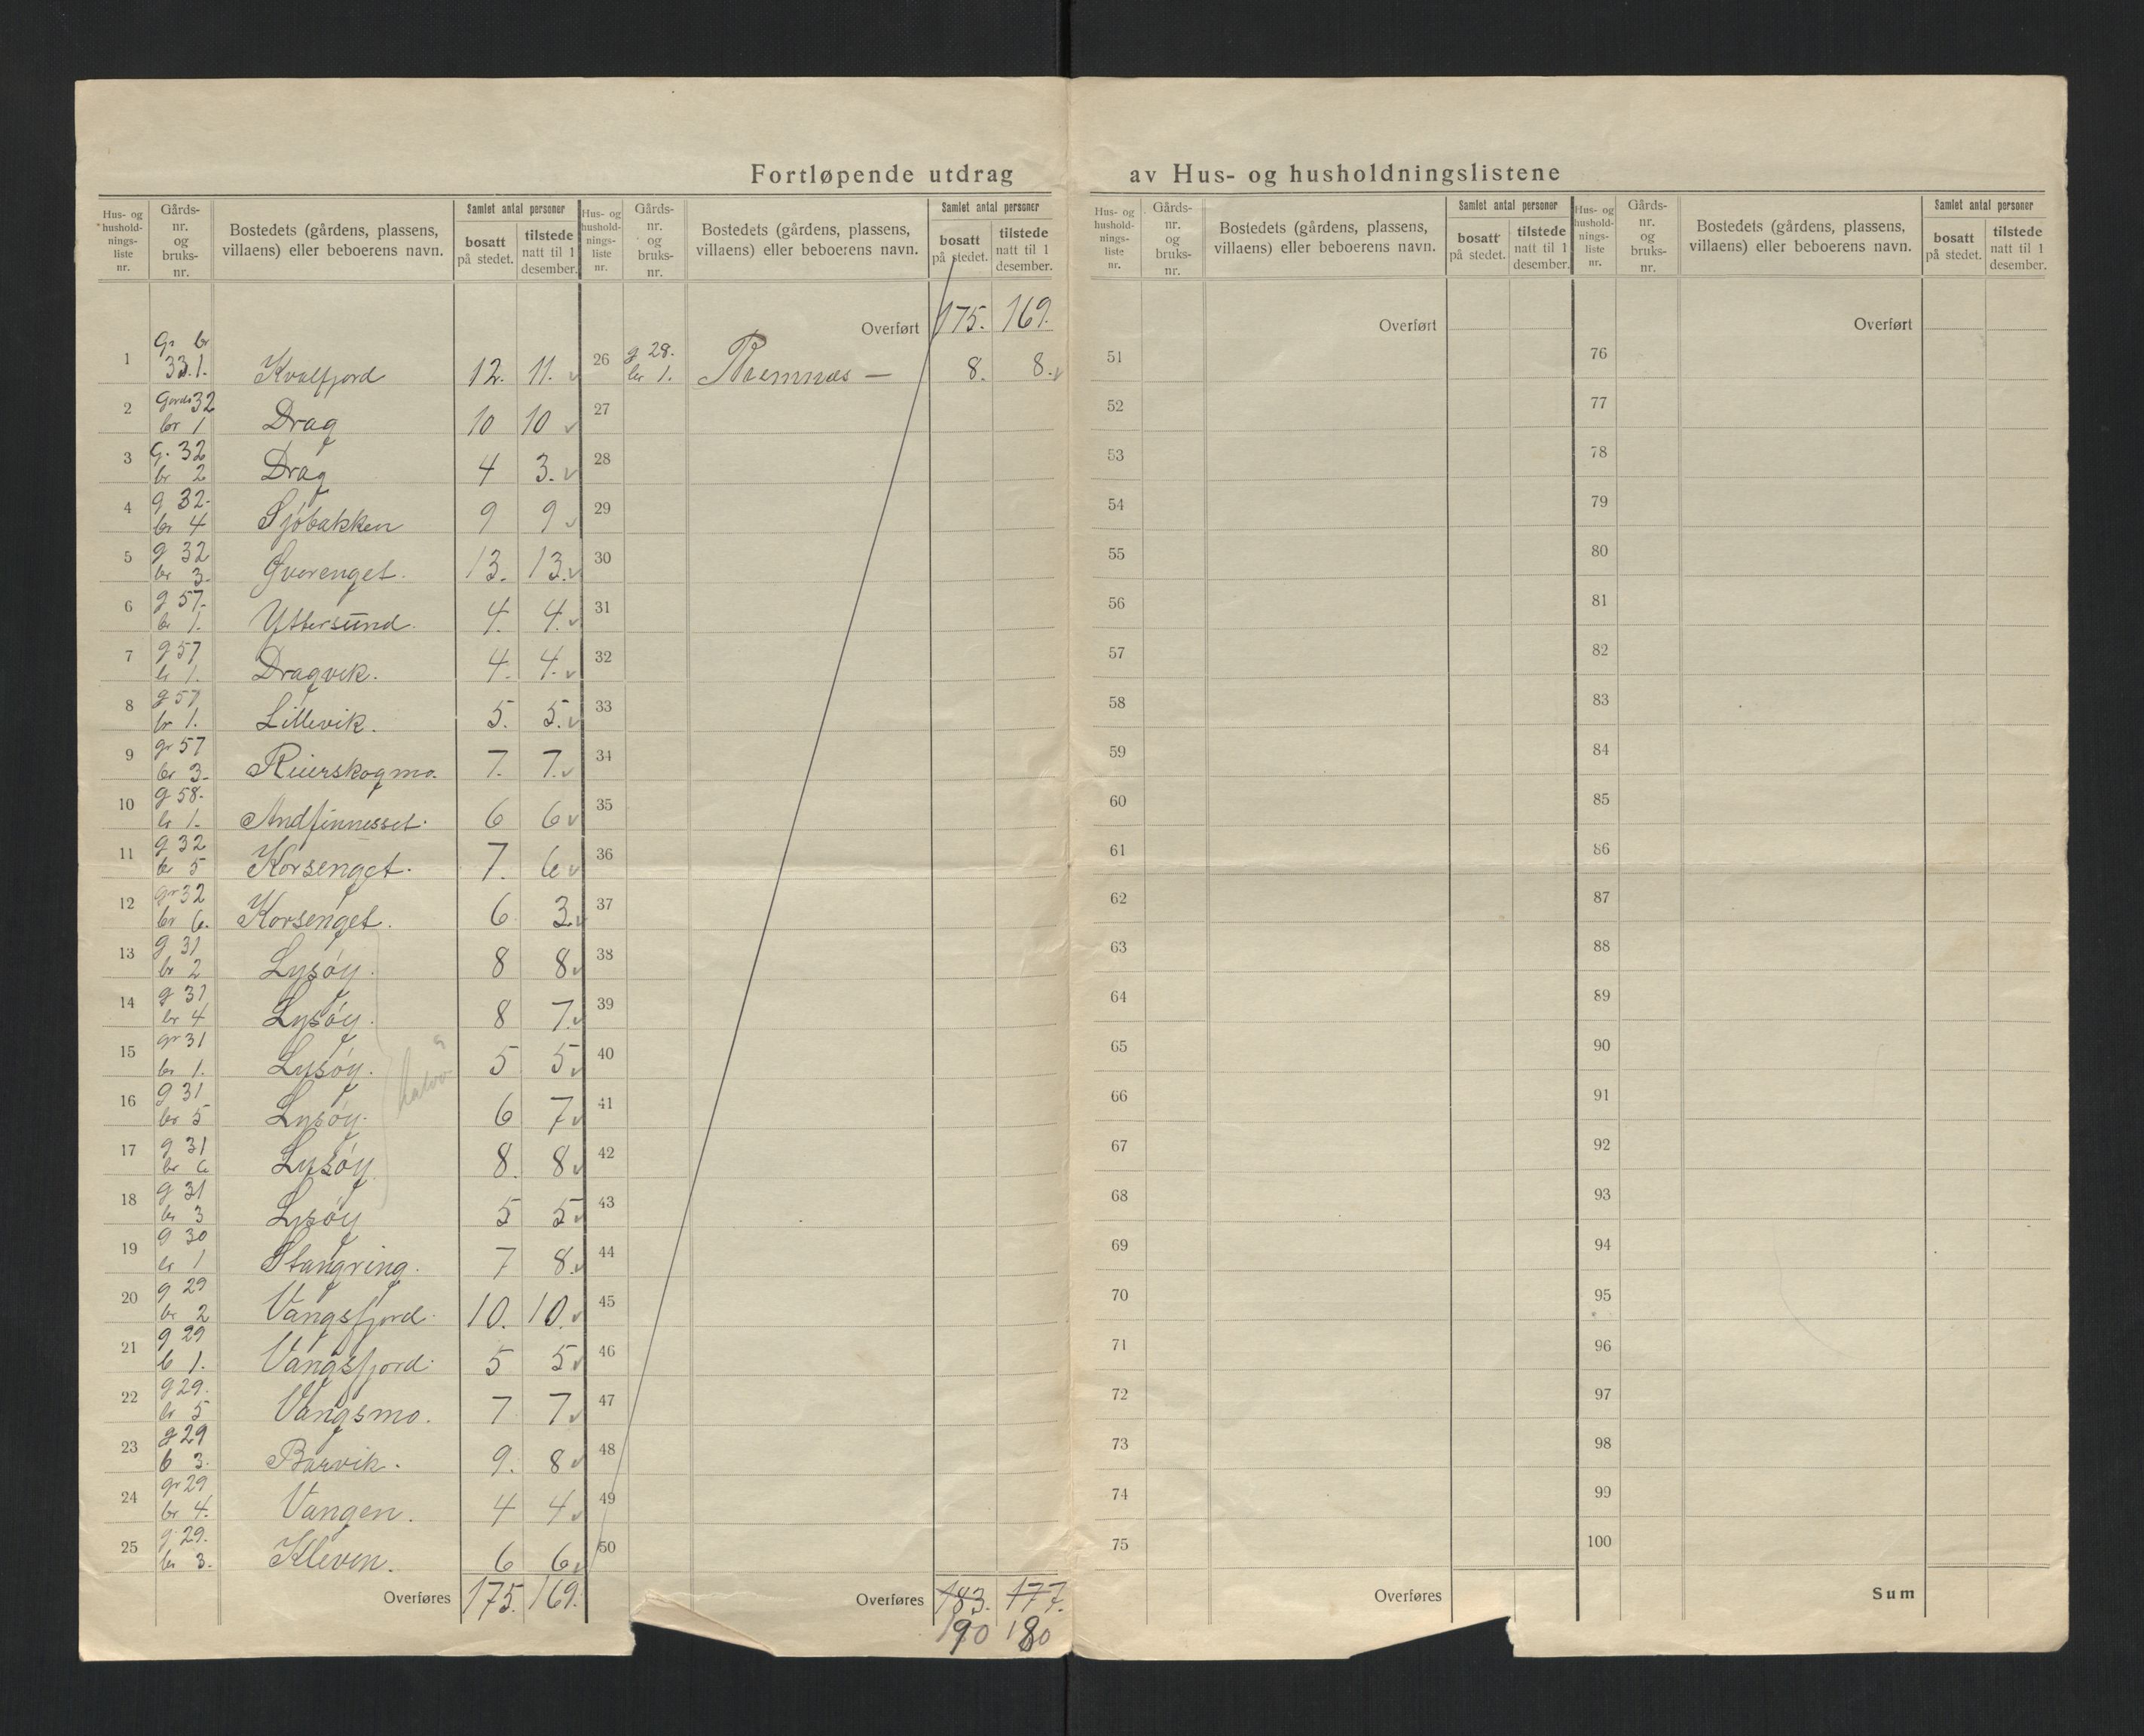 Fortløpende utdrag av Hus- og husholdningslistene
Hus- og hushold-nings-liste nr. Gårds-nr. og bruks-nr. Bostedets (gårdens, plassens, villaens) eller beboerens navn. Samlet antal personer bosatt på stedet. tilstede natt til 1 desember.
Hus- og hushold-nings-liste nr. Gårds-nr. og bruks-nr. Bostedets (gårdens, plassens, villaens) eller beboerens navn. Samlet antal personer bosatt på stedet. tilstede natt til 1 desember.
1 Gr br 33.1. Kvalfjord 12. 11. v
2 Gards 32 br 1 Drag 10 10 v
3 G. 32 br 2 Drag 4 3. v
4 g 32. br 4 Sjöbakken 9 9 v
5 g 32 br 3. Gverenget. 13. 13. v
6 g 57. br 1. Yttersund. 4. 4. v
7 g 57 br 1. Dragvik. 4. 4. v
8 g 57 br 1. Lillevik. 5. 5. v
9 gr 57 br 3. Reierskogmo. 7. 7. v
10 g 58. br 1. Andfinnesset. 6 6 v
11 g 32 br 5 Korsenget. 7. 6 v
12 gr 32 br 6. Korsenget. 6 3. v
13 g 31 br 2 Lysøy. 8 8 v
14 g 31 br 4 Lysøy. 8 7. v
15 gr 31 br 1. Lysøy. 5 5 v
16 g 31 br 5 Lysøy. 6 7 v
17 g 31 br 6 Lysøy 8. 8 v
18 g 31 br 3 Lysøy 5 5 v
19 g 30 br 1 Stangring. 7 8. v
20 g 29 br 2 Vangsfjord. 10. 10. v
21 g 29 b 1. Vangsfjord. 5 5 v
22 g 29. br 5 Vangsmo. 7 7 v
23 g 29 b 3. Barvik. 9. 8 v
24 gr 29 br 4. Vangen. 4 4 v
25 g 29. br 3. Kleven. 6 6 v
Overføres 175. 169.
Overført 175. 169.
26 g 29. br 1. 8. 8. v
27
28
29
30
31
32
33
34
35
36
37
38
39
40
41
42
43
44
45
46
47
48
49
50
Overføres 183. 177.
190 180
Hus- og hushold-nings-liste nr. Gårds-nr. og bruks-nr. Bostedets (gårdens, plassens, villaens) eller beboerens navn. Samlet antal personer bosatt på stedet. tilstede natt til 1 desember.
Overført
51
52
53
54
55
56
57
58
59
60
61
62
63
64
65
66
67
68
69
70
71
72
73
74
75
Overføres
Hus- og hushold-nings-liste nr. Gårds-nr. og bruks-nr. Bostedets (gårdens, plassens, villaens) eller beboerens navn. Samlet antal personer bosatt på stedet. tilstede natt til 1 desember.
Overført
76
77
78
79
80
81
82
83
84
85
86
87
88
89
90
91
92
93
94
95
96
97
98
99
100
Sum